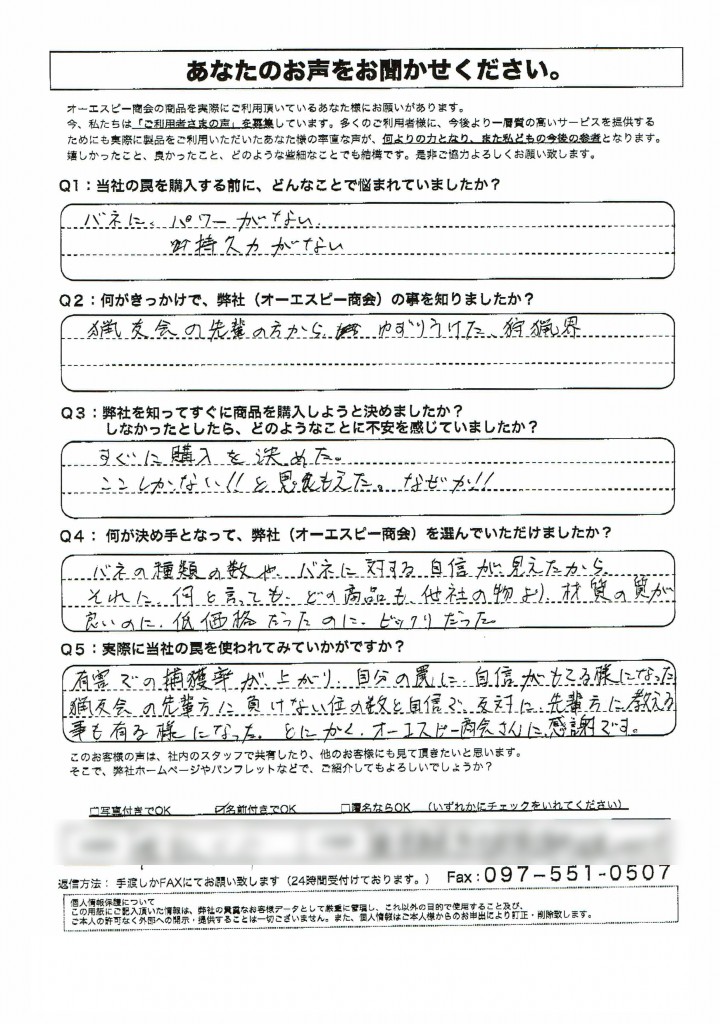 あなたのお声をお聞かせください。
オーエスピー商会の商品を実際にご利用頂いているあなた様にお願いがあります。
今、私たちは「ご利用者さまの声」を募集しています。多くのご利用者様に、今後より一層質の高いサービスを提供する
ためにも実際に製品をご利用いただいたあなた様の率直な声が、何よりの力となり、また私どもの今後の参考となります。
嬉しかったこと、良かったこと、どのような些細なことでも結構です。是非ご協力よろしくお願い致します。
Q1：当社の罠を購入する前に、どんなことで悩まれていましたか？
バネに、パワーがない、
持久力がない
Q2：何がきっかけで、弊社（オーエスピー商会）の事を知りましたか？
猟友会の先輩の方から ゆずりうけた、狩猟界
Q3：弊社を知ってすぐに商品を購入しようと決めましたか？
しなかったとしたら、どのようなことに不安を感じていましたか？
すぐに購入を決めた。
ここしかない!!と思えた。なぜか!!
Q4： 何が決め手となって、弊社（オーエスピー商会）を選んでいただけましたか？
バネの種類の数や、バネに対する自信が見えたから、
それに、何と言っても、どの商品も、他社の物より、材質の質が
良いのに、低価格だったのに、ビックリだった。
Q5：実際に当社の罠を使われてみていかがですか？
有害での捕獲率が上がり、自分の罠に、自信がもてる様になった
猟友会の先輩方に負けない位の数と自信で、反対に、先輩方に教える
事も有る様になった。とにかく、オーエスピー商会さんに感謝です。
このお客様の声は、社内のスタッフで共有したり、他のお客様にも見て頂きたいと思います。
そこで、弊社ホームページやパンフレットなどで、ご紹介してもよろしいでしょうか？
□写真付きでOK ☑名前付きでOK □匿名ならOK （いずれかにチェックをいれてください）
返信方法： 手渡しかFAXにてお願い致します（24時間受付けております。） Fax：097-551-0507
個人情報保護について
この用紙にご記入頂いた情報は、弊社の貴重なお客様データとして厳重に管理し、これ以外の目的で使用すること及び、
ご本人の許可なく外部への開示・提供することは一切ございません。また、個人情報はご本人様からのお申出により訂正・削除致します。